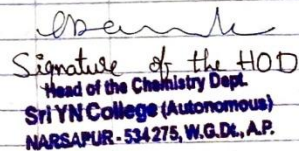 Signature of the HOD
Head of the Chemistry Dept.
Sri YN College (Autonomous)
NARSAPUR - 534 275, W.G.Dt., A.P.